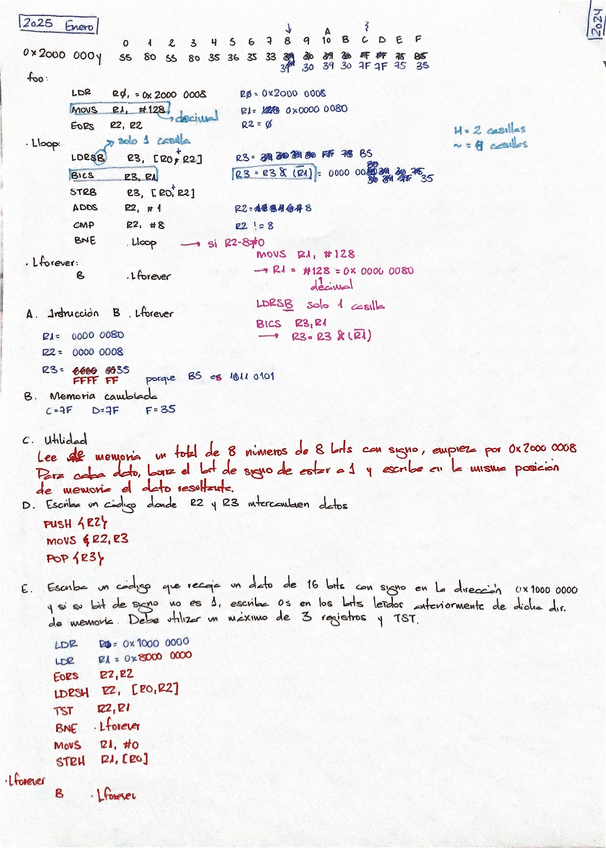 2025 Enero
2024
0 1 2 3 4 5 6 7 8 9 A 10 B C D E F
0x2000 000y 55 80 55 80 35 36 35 33
31 30 39 30 7F 7F 75 35
foo:
LDR RØ, = 0x 2000 0008 RØ = 0x2000 0008
MOVS R1, #128 decimal R1= 0x0000 0080
EORS R2, R2 R2 = Ø
H = 2 casillas
.Lloop: solo 1 casilla
LDRSB R3, [R0+R2] R3 =
BICS R3, R1 R3 = R3 & (R1) = 0000 00
STRB R3, [R0+R2]
ADDS R2, #1 R2 = 8
CMP R2, #8 R2 != 8
BNE .Lloop → si R2-8≠0
MOVS R1, #128
.Lforever:
→ R1 = #128 = 0x 0000 0080
B .Lforever
decimal
LDRSB solo 1 casilla
A. Instrucción B .Lforever
BICS R3, R1
→ R3 = R3 & (R1)
R1= 0000 0080
R2= 0000 0008
R3= 35
FFFF FF porque B5 es 1011 0101
B. Memoria cambiada
C=7F D=7F F=35
C. Utilidad
Lee de memoria un total de 8 números de 8 bits con signo, empieza por 0x2000 0008
Para cada dato, borra el bit de signo de estar a 1 y escribe en la misma posición
de memoria el dato resultante.
D. Escriba un código donde R2 y R3 intercambien datos
PUSH {R2}
MOVS R2, R3
POP {R3}
E. Escriba un código que recoja un dato de 16 bits con signo en la dirección 0x1000 0000
y si su bit de signo no es 1, escriba 0s en los bits leídos anteriormente de dicha dir.
de memoria. Debe utilizar un máximo de 3 registros y TST.
LDR R0= 0x1000 0000
LDR R1 = 0x8000 0000
EORS R2, R2
LDRSH R2, [R0, R2]
TST R2, R1
BNE .Lforever
MOVS R1, #0
STRH R1, [R0]
.Lforever
B .Lforever